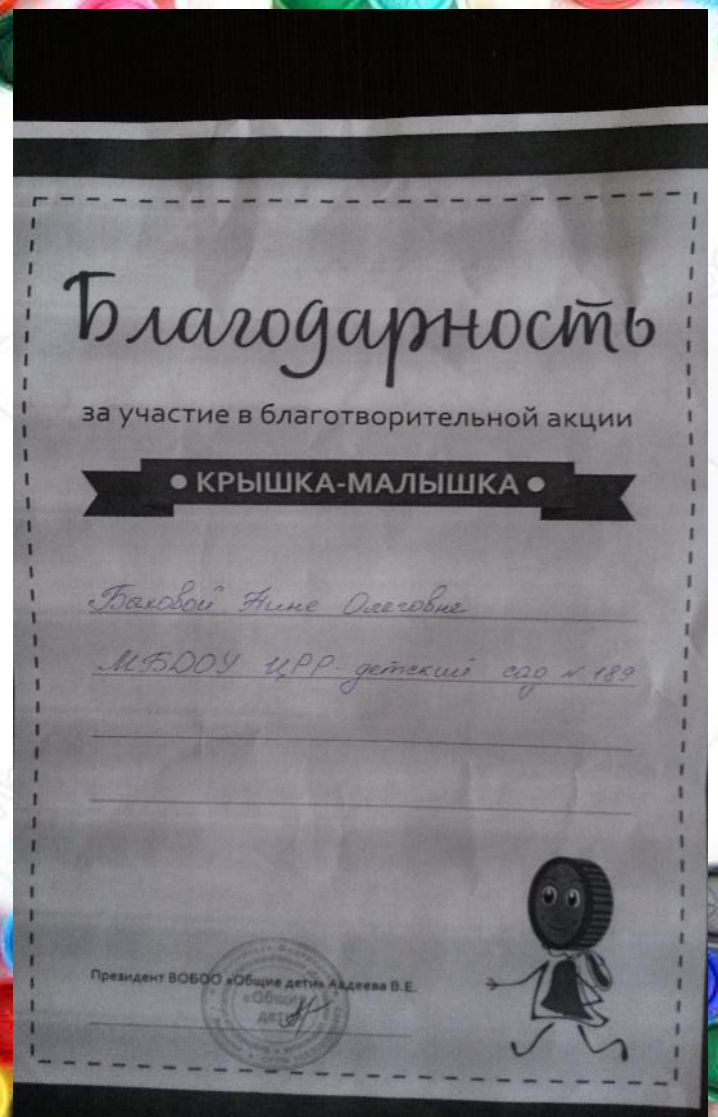 Благодарность
за участие в благотворительной акции
• КРЫШКА-МАЛЫШКА •
Баховой Нине Олеговне
МБДОУ ЦРР-детский сад № 189
Президент ВОБОО «Общие дети» Авдеева В.Е.
«Общие
дети»